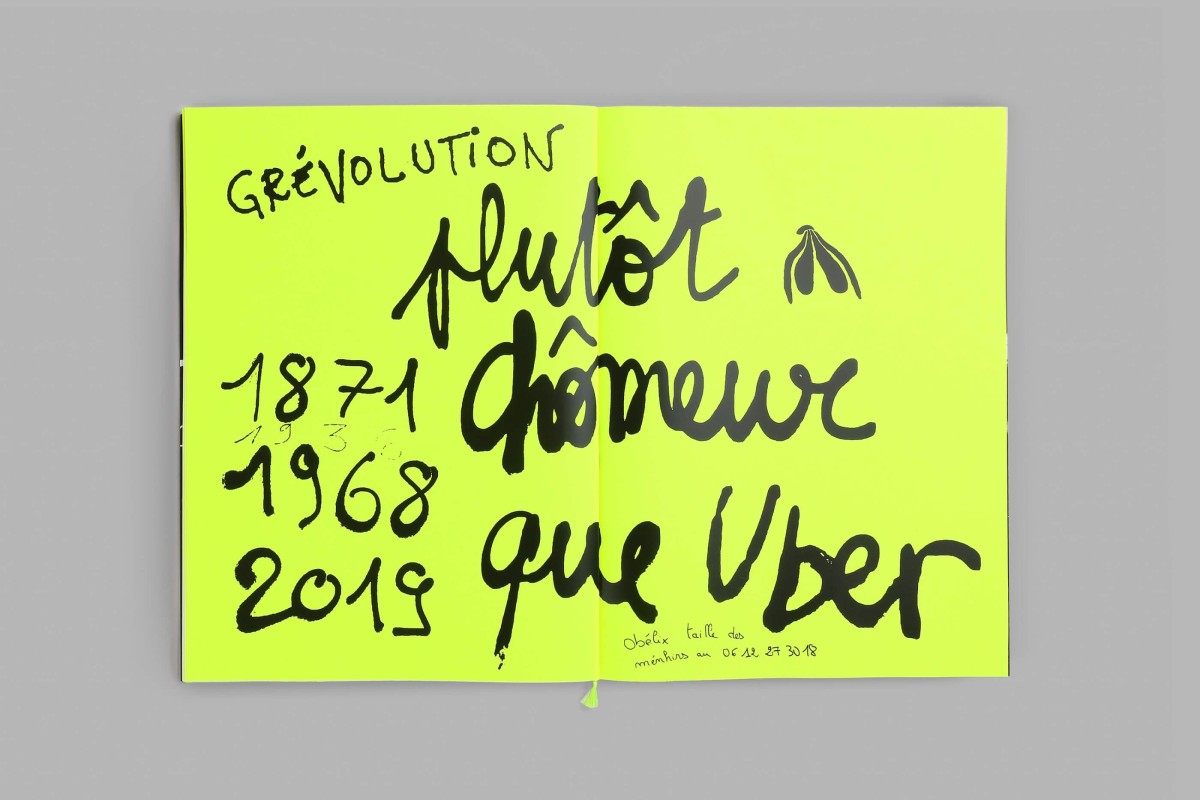 GRÉVOLUTION
plutôt
chômeur
que Uber
1871
1936
1968
2019
Obélix taille des
ménhirs au 06 12 27 30 18